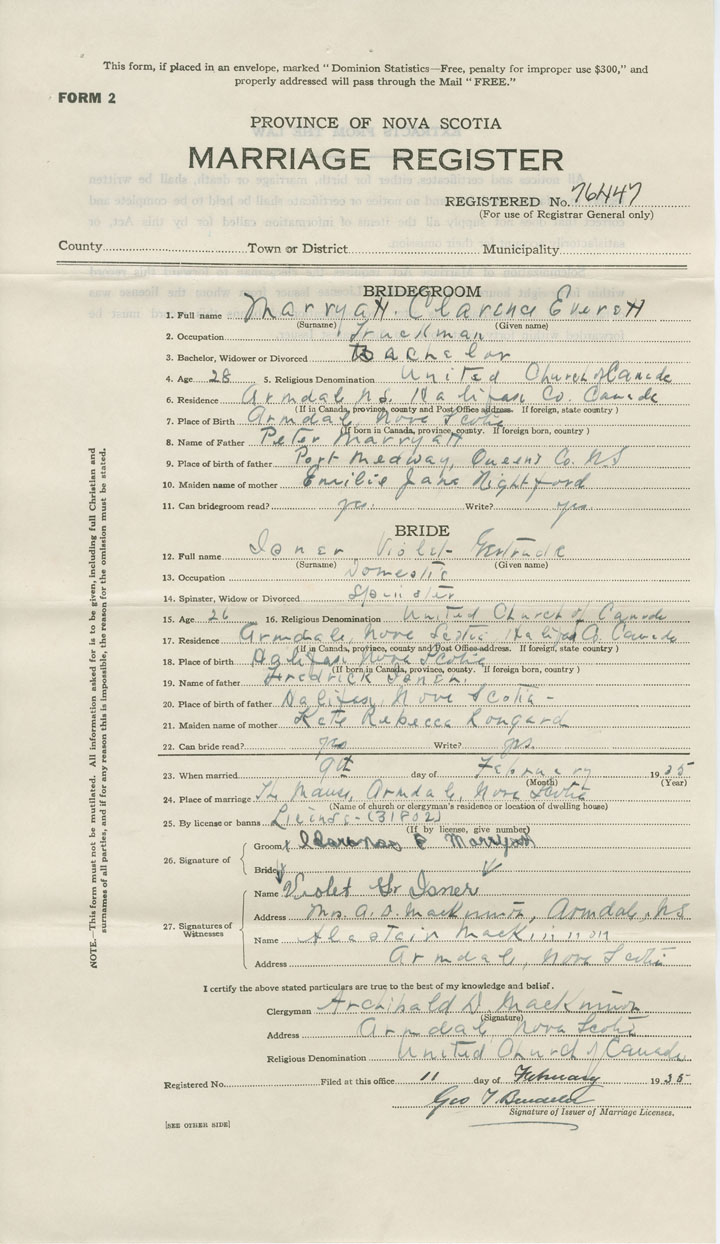 This form, if placed in an envelope, marked "Dominion Statistics—Free, penalty for improper use $300," and
properly addressed will pass through the Mail "FREE."
FORM 2
PROVINCE OF NOVA SCOTIA
MARRIAGE REGISTER
REGISTERED No. 76447
(For use of Registrar General only)
County Town or District Municipality
BRIDEGROOM
1. Full name Marryatt Clarence Everett
(Surname) (Given name)
2. Occupation Truckman
3. Bachelor, Widower or Divorced Bachelor
4. Age 28 5. Religious Denomination United Church of Canada
6. Residence Armdale N.S. Halifax Co. Canada
(If in Canada, province, county and Post Office address. If foreign, state country)
7. Place of Birth Armdale, Nova Scotia
(If born in Canada, province, county. If foreign born, country)
8. Name of Father Peter Marryatt
9. Place of birth of father Port Medway, Queens Co. N.S
10. Maiden name of mother Emilie Jane
11. Can bridegroom read? yes. Write? yes.
BRIDE
12. Full name Isner Violet Gertrude
(Surname) (Given name)
13. Occupation Domestic
14. Spinster, Widow or Divorced Spinster
15. Age 26 16. Religious Denomination United Church of Canada
17. Residence Armdale, Nova Scotia, Halifax Co. Canada
(If in Canada, province, county and Post Office address. If foreign, state country)
18. Place of birth Halifax Nova Scotia
(If born in Canada, province, county. If foreign born, country)
19. Name of father Fredrick Isner.
20. Place of birth of father Halifax, Nova Scotia -
21. Maiden name of mother Kate Rebecca Longard
22. Can bride read? yes Write? yes.
23. When married 9th day of February 1935
(Month) (Year)
24. Place of marriage The Manse, Armdale, Nova Scotia
(Name of church or clergyman's residence or location of dwelling house)
25. By license or banns License - (31802)
(If by license, give number)
26. Signature of Groom Clarence E Marryatt
Bride
27. Signatures of Witnesses
Name Violet G. Isner
Address Mrs. A. D. MacKinnon, Armdale, N.S
Name Alastair MacKinnon
Address Armdale, Nova Scotia
I certify the above stated particulars are true to the best of my knowledge and belief.
Clergyman Archibald D. MacKinnon
(Signature)
Address Armdale Nova Scotia
Religious Denomination United Church of Canada
Registered No. Filed at this office 11 day of February 1935
Geo T.
Signature of Issuer of Marriage Licenses.
[SEE OTHER SIDE]
NOTE.—This form must not be mutilated. All information asked for is to be given, including full Christian and
surnames of all parties, and if for any reason this is impossible, the reason for the omission must be stated.